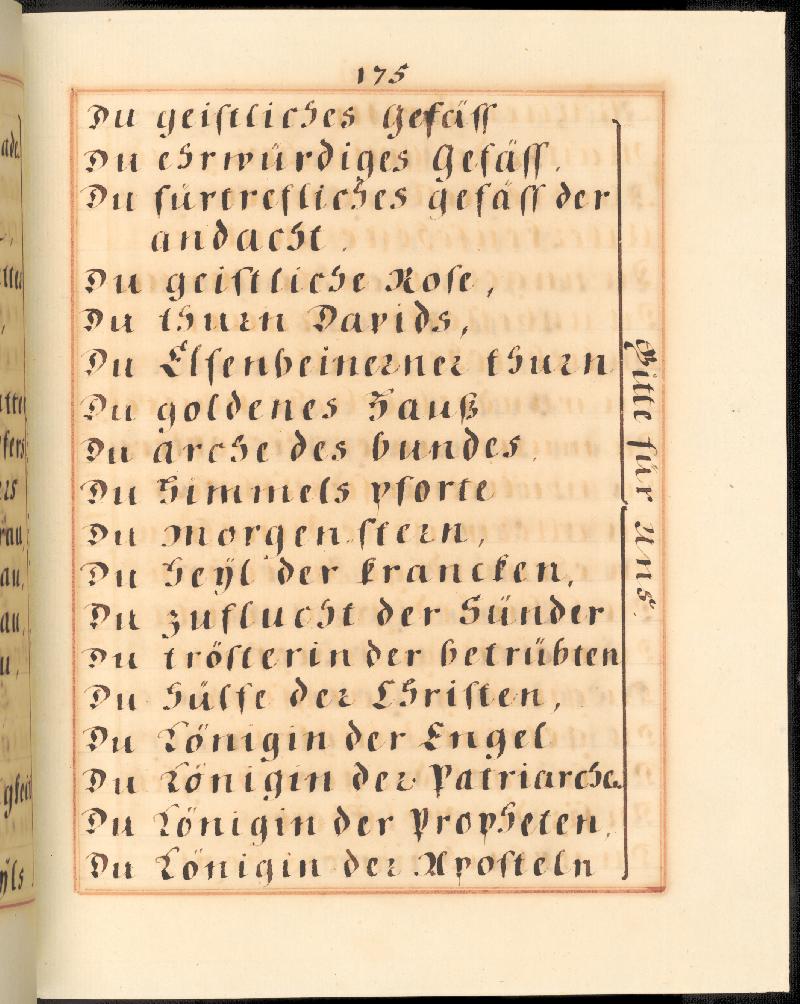 175
Du geistliches Gefäss
Du ehrwürdiges Gefäss.
Du fürtrefliches gefäss der
andacht.
Du geistliche Rose,
Du thurn Davids,
Du Elfenbeinerner thurn
Du goldenes Hauß
Du arche des bundes.
Du Himmels pforte
Du morgenstern,
Du Heÿl der krancken,
Du zuflucht der Sünder
Du trösterin der betrübten
Du Hülfe der Christen,
Du Königin der Engel
Du Königin der Patriarche.
Du Königin der Propheten,
Du Königin der Aposteln
Bitte für uns.